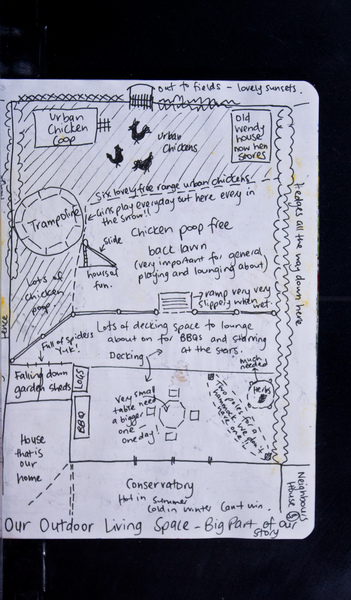 out to fields - lovely sunsets.
Urban
Chicken
Coop
Urban
Chickens
Old
wendy
house
now hen
stores
Six lovely free range urban chickens
Girls play everyday out here even in
the snow!!
Trampoline
Chicken poop free
back lawn
(very important for general
playing and lounging about)
Slide
hours of
fun.
Lots of
chicken
poop
Hedges all the way down here
Fence
ramp very very
slippely when
wet.
Lots of decking space to lounge
about on for BBQs and starring
at the stars.
Full of spiders
Yuk!
Decking
much
needed
Falling down
garden sheds
LOGS
BBQ
Very small
table need
a bigger
one
one day!
Two poles for a
hammock - we don't
have one!
Herbs
House
that is
our
home
Conservatory
Hot in summer
Cold in winter Can't win.
Neighbours
House
Our Outdoor Living Space - Big Part of our
story